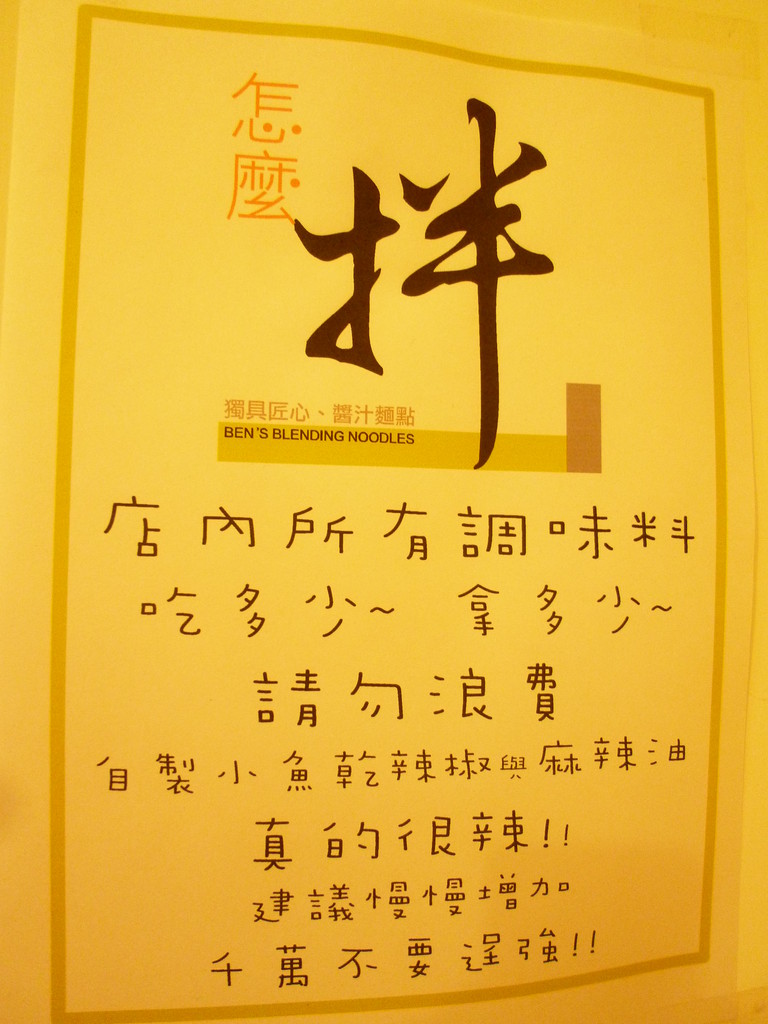 怎麼
拌
獨具匠心、醬汁麵點
BEN'S BLENDING NOODLES
店內所有調味料
吃多少~ 拿多少~
請勿浪費
自製小魚乾辣椒與麻辣油
真的很辣!!
建議慢慢增加
千萬不要逞強!!